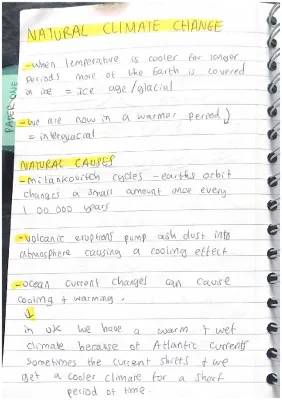 PAPER ONE
NATURAL CLIMATE CHANGE
-when temperature is cooler for longer
periods more of the Earth is covered
in ice = Ice age/glacial
-we are now in a warmer period
= interglacial
NATURAL CAUSES
-milankovitch cycles - earths orbit
changes a small amount once every
100 000 years
-volcanic eruptions pump ash dust into
atmosphere causing a cooling effect
-ocean current changes can cause
cooling + warming.
↓
in uk we have a warm + wet
climate because of Atlantic currents
sometimes the current shifts + we
get a cooler climate for a short
period of time.